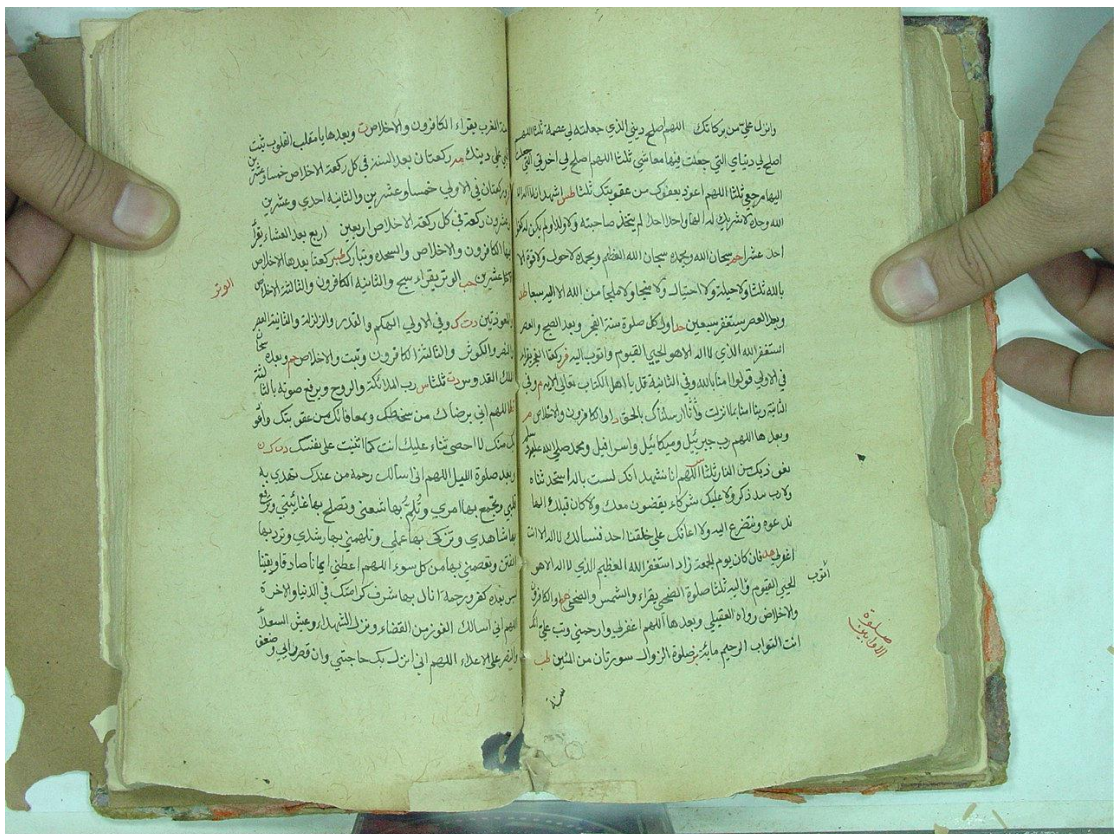 وانزل علي من بركاتك اللهم اصلح ديني الذي جعلته لي عصمة ثلثا اللهم
اصلح لي دنياي التي جعلت فيها معاشي ثلثا اللهم اصلح لي اخرتي التي جعلت
اليها مرجعي ثلثا اللهم اعوذ بعفوك من عقوبتك ثلثا طس اشهد ان لا اله الا
الله وحده لا شريك له الها واحدا احدا لم يتخذ صاحبة ولا ولدا ولم يكن له كفوا
احد عشرا سبحان الله وبحمده سبحان الله العظيم وبحمده لاحول ولاقوة الا
بالله ثلثا ولاحيلة ولا احتيال ولا منجا ولا ملجأ من الله الا اليه سبعا
وبعد العصر يستغفر سبعين اولي كل صلوة سنة الفجر وبعد الصبح والعصر
استغفر الله الذي لا اله الا هو الحي القيوم واتوب اليه ركعتا الفجر يقراء
في الاولي قولوا امنا بالله وفي الثانية قل يا اهل الكتاب تعالي الاية م وفي
الثانية ربنا امنا بما انزلت وانا ارسلناك بالحق او الكافرون والاخلاص
وبعدها اللهم رب جبرئيل وميكائيل واسرافيل ومحمد صلي الله عليه وسلم
نعوذ بك من النار ثلثا اللهم انا نشهد انك لست باله استحدثناه
ولا رب ذكره ولا عليك شركاء يقضون معك ولا كان قبلك الها
ندعوه ونتضرع اليه ولا اعانك علي خلقنا احد فنسالك لا اله الا انت
اغفر لي فان كان يوم الجمعة زاد استغفر الله العظيم الذي لا اله الا هو
الحي القيوم واليه ثلثا صلوة الضحي يقراء والشمس والضحي والكافرون
اتوب
والاخلاص رواه العقيلي وبعدها اللهم اغفر لي وارحمني وتب علي انك
انت التواب الرحيم صلوة الزوال سورتان من المئين طب
صلوة الاوابين
سنة
سنة المغرب يقراء الكافرون والاخلاص وبعدها يا مقلب القلوب ثبت
قلبي علي دينك ركعتان بعد السنة في كل ركعة الاخلاص خمسا وعشرين
وركعتان في الاولي خمسا وعشرين والثانية احدي وعشرين
وعشرون ركعة في كل ركعة الاخلاص اربعين اربع بعد العشاء يقرأ
فيها الكافرون والاخلاص والسجدة وتبارك ركعتا بعدها الاخلاص
عشرين حب الوتر يقراء سبح والثانية الكافرون والثالثة الاخلاص
الوتر
والمعوذتين دت ك وفي الاولي الهكم والقدر والزلزلة والثانية العصر
والنصر والكوثر والثالثة الكافرون وتبت والاخلاص وبعده سبحان
الملك القدوس دت ثلثا س رب الملائكة والروح ويرفع صوته بالثالثة
اللهم اني برضاك من سخطك وبمعافاتك من عقوبتك واعوذ
بك منك لا احصي ثناء عليك انت كما اثنيت علي نفسك
وبعد صلوة الليل اللهم اني اسالك رحمة من عندك تهدي بها
قلبي وتجمع بها امري وتلم بها شعثي وتصلح بها غائبتي وترفع
بها شاهدي وتزكي بها عملي وتلهمني بها رشدي وترد بها
الفتن وتعصمني بها من كل سوء اللهم اعطني ايمانا صادقا ويقينا
ليس بعده كفر ورحمة انال بها شرف كرامتك في الدنيا والاخرة
اللهم اني اسالك الفوز من القضاء ونزل الشهداء وعيش السعداء
والنصر علي الاعداء اللهم اني انزل بك حاجتي وان قصر رايي وضعف